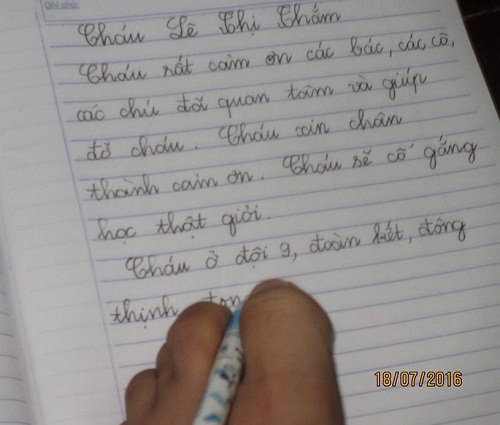 Ghi chú
Cháu Lê Thị Thắm
Cháu rất cảm ơn các bác, các cô,
các chú đã quan tâm và giúp
đỡ cháu. Cháu xin chân
thành cảm ơn. Cháu sẽ cố gắng
học thật giỏi.
Cháu ở đội 9, đoàn kết, đông
thịnh
18/07/2016